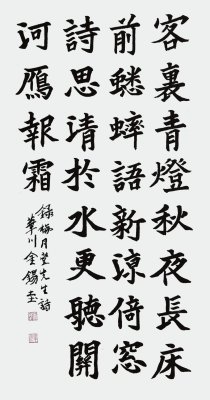 客裏青燈秋夜長床
前蟋蟀語新涼倚窓
詩思清於水更聽關
河鴈報霜
錄梅月堂先生詩
川金錫